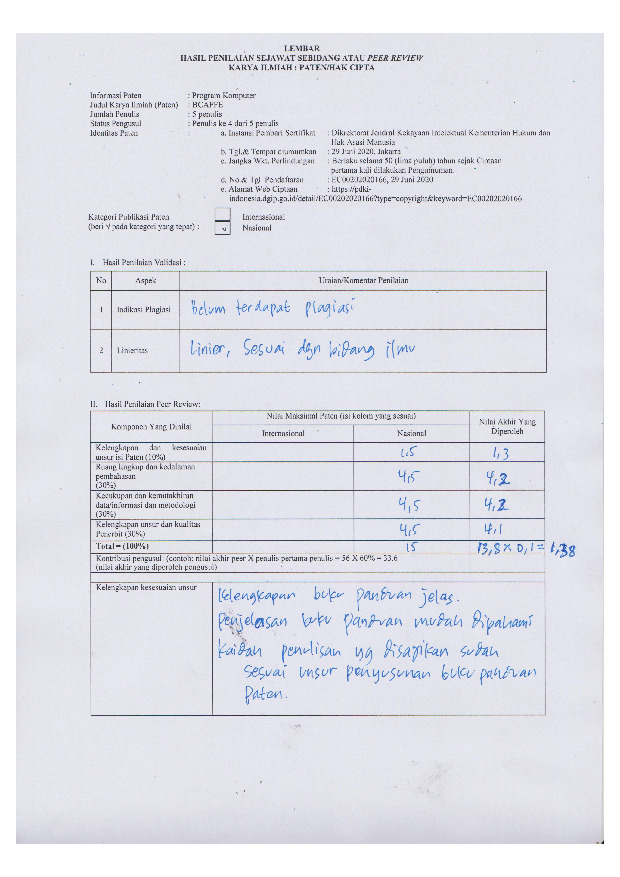 LEMBAR
HASIL PENILAIAN SEJAWAT SEBIDANG ATAU PEER REVIEW
KARYA ILMIAH : PATEN/HAK CIPTA
Informasi Paten : Program Komputer
Judul Karya Ilmiah (Paten) : BCAFFE
Jumlah Penulis : 5 penulis
Status Pengusul : Penulis ke 4 dari 5 penulis
Identitas Paten : a. Instansi Pemberi Sertifikat : Direktorat Jendral Kekayaan Intelektual Kementerian Hukum dan
Hak Asasi Manusia
b. Tgl.& Tempat diumumkan : 29 Juni 2020, Jakarta
c. Jangka Wkt. Perlindungan : Berlaku selama 50 (lima puluh) tahun sejak Ciptaan
pertama kali dilakukan Pengumuman.
d. No.& Tgl. Pendaftaran : EC00202020166, 29 Juni 2020
e. Alamat Web Ciptaan : https://pdki-
indonesia.dgip.go.id/detail/EC00202020166?type=copyright&keyword=EC00202020166
Kategori Publikasi Paten Internasional
(beri √ pada kategori yang tepat) : √ Nasional
I. Hasil Penilaian Validasi :
No Aspek Uraian/Komentar Penilaian
1 Indikasi Plagiasi Belum terdapat plagiasi
2 Linieritas Linier, Sesuai dgn bidang ilmu
II. Hasil Penilaian Peer Review:
Komponen Yang Dinilai Nilai Maksimal Paten (isi kolom yang sesuai) Nilai Akhir Yang Diperoleh
Internasional Nasional
Kelengkapan dan kesesuaian
unsur isi Paten (10%) 1,5 1,3
Ruang lingkup dan kedalaman
pembahasan 4,5 4,2
(30%)
Kecukupan dan kemutakhiran
data/informasi dan metodologi 4,5 4,2
(30%)
Kelengkapan unsur dan kualitas
Penerbit (30%) 4,5 4,1
Total = (100%) 15 13,8 x 0,1 = 1,38
Kontribusi pengusul (contoh: nilai akhir peer X penulis pertama penulis = 56 X 60% = 33.6
(nilai akhir yang diperoleh pengusul)
Kelengkapan kesesuaian unsur Kelengkapan buku panduan jelas.
Penjelasan buku panduan mudah dipahami
Kaidah penulisan yg disajikan sudah
sesuai unsur penyusunan buku panduan
Paten.